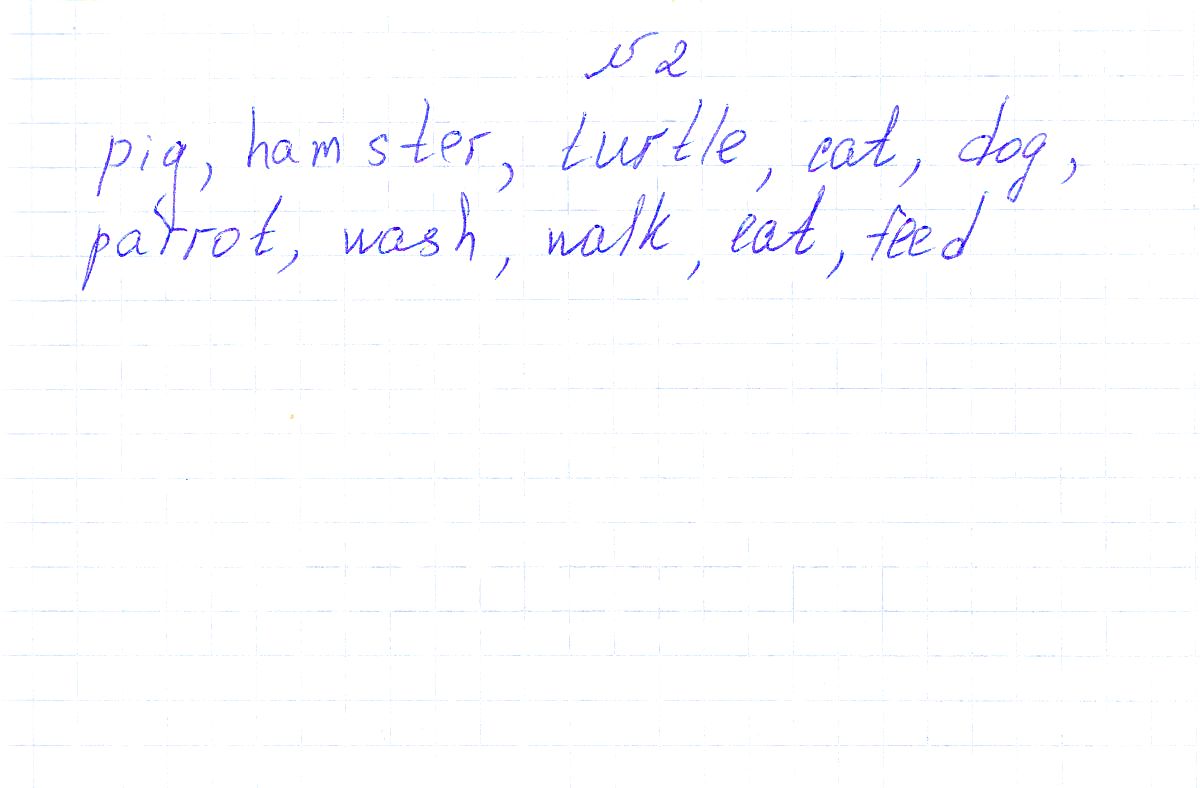 № 2
pig, hamster, turtle, cat, dog,
parrot, wash, walk, eat, feed